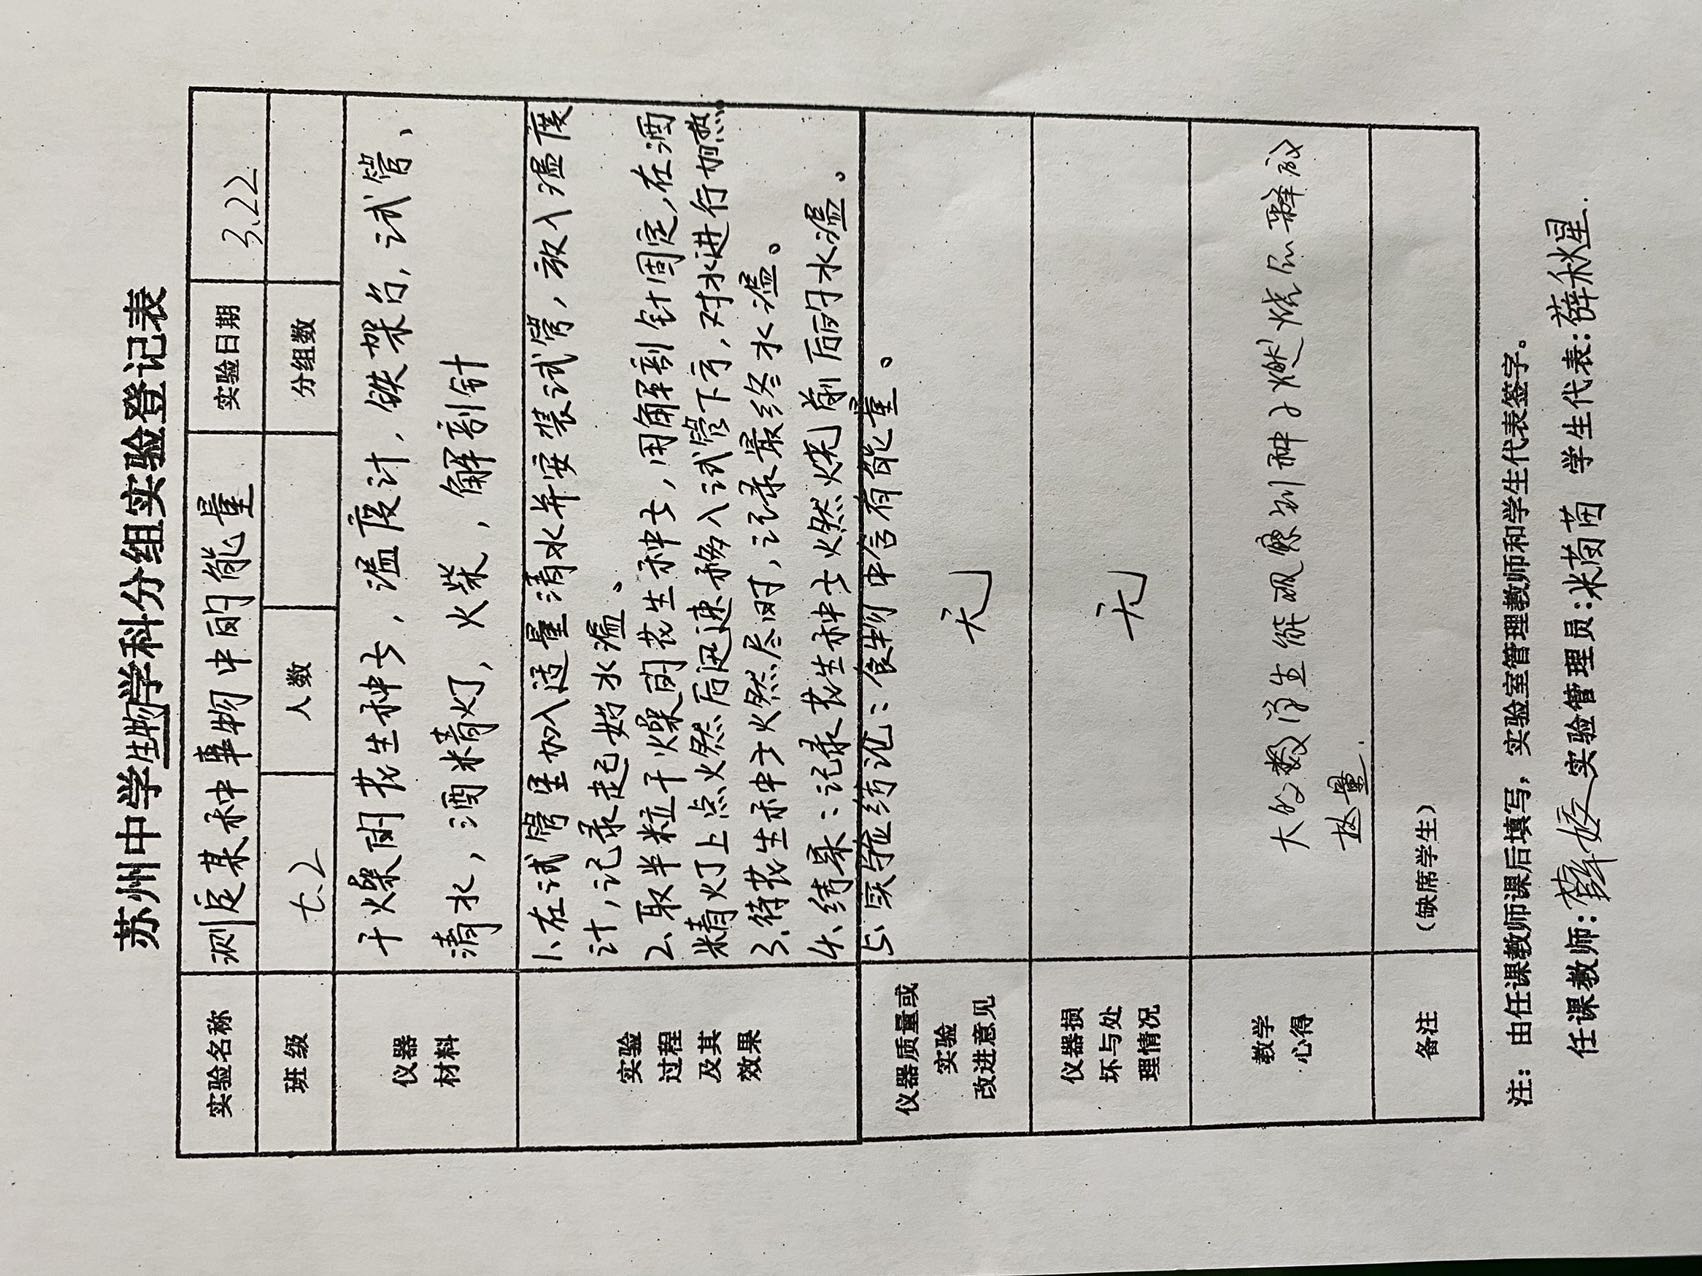 苏州中学生物学科分组实验登记表
实验名称 测定某种事物中的能量 实验日期 3.22
班级 七.2 人数 分组数
仪器
材料
干燥的花生种子，温度计，铁架台，试管、
清水，酒精灯，火柴，解剖针
实验
过程
及其
效果
1.在试管里加入适量清水并安装试管，放入温度
计，记录起始水温。
2.取半粒干燥的花生种子，用解剖针固定，在酒
精灯上点火燃后迅速移入试管下方，对水进行加热
3.待花生种子火燃尽时，记录最终水温。
4.结果：记录花生种子火燃烧前后的水温。
5.实验结论：食物中含有能量。
仪器质量或
实验
改进意见
无
仪器损
坏与处
理情况
无
教学
心得
大多数学生能观察到种子燃烧后释放
热量.
备注 （缺席学生）
注：由任课教师课后填写，实验室管理教师和学生代表签字。
任课教师：薛媛 实验管理员：米茵茵 学生代表：薛秋星.